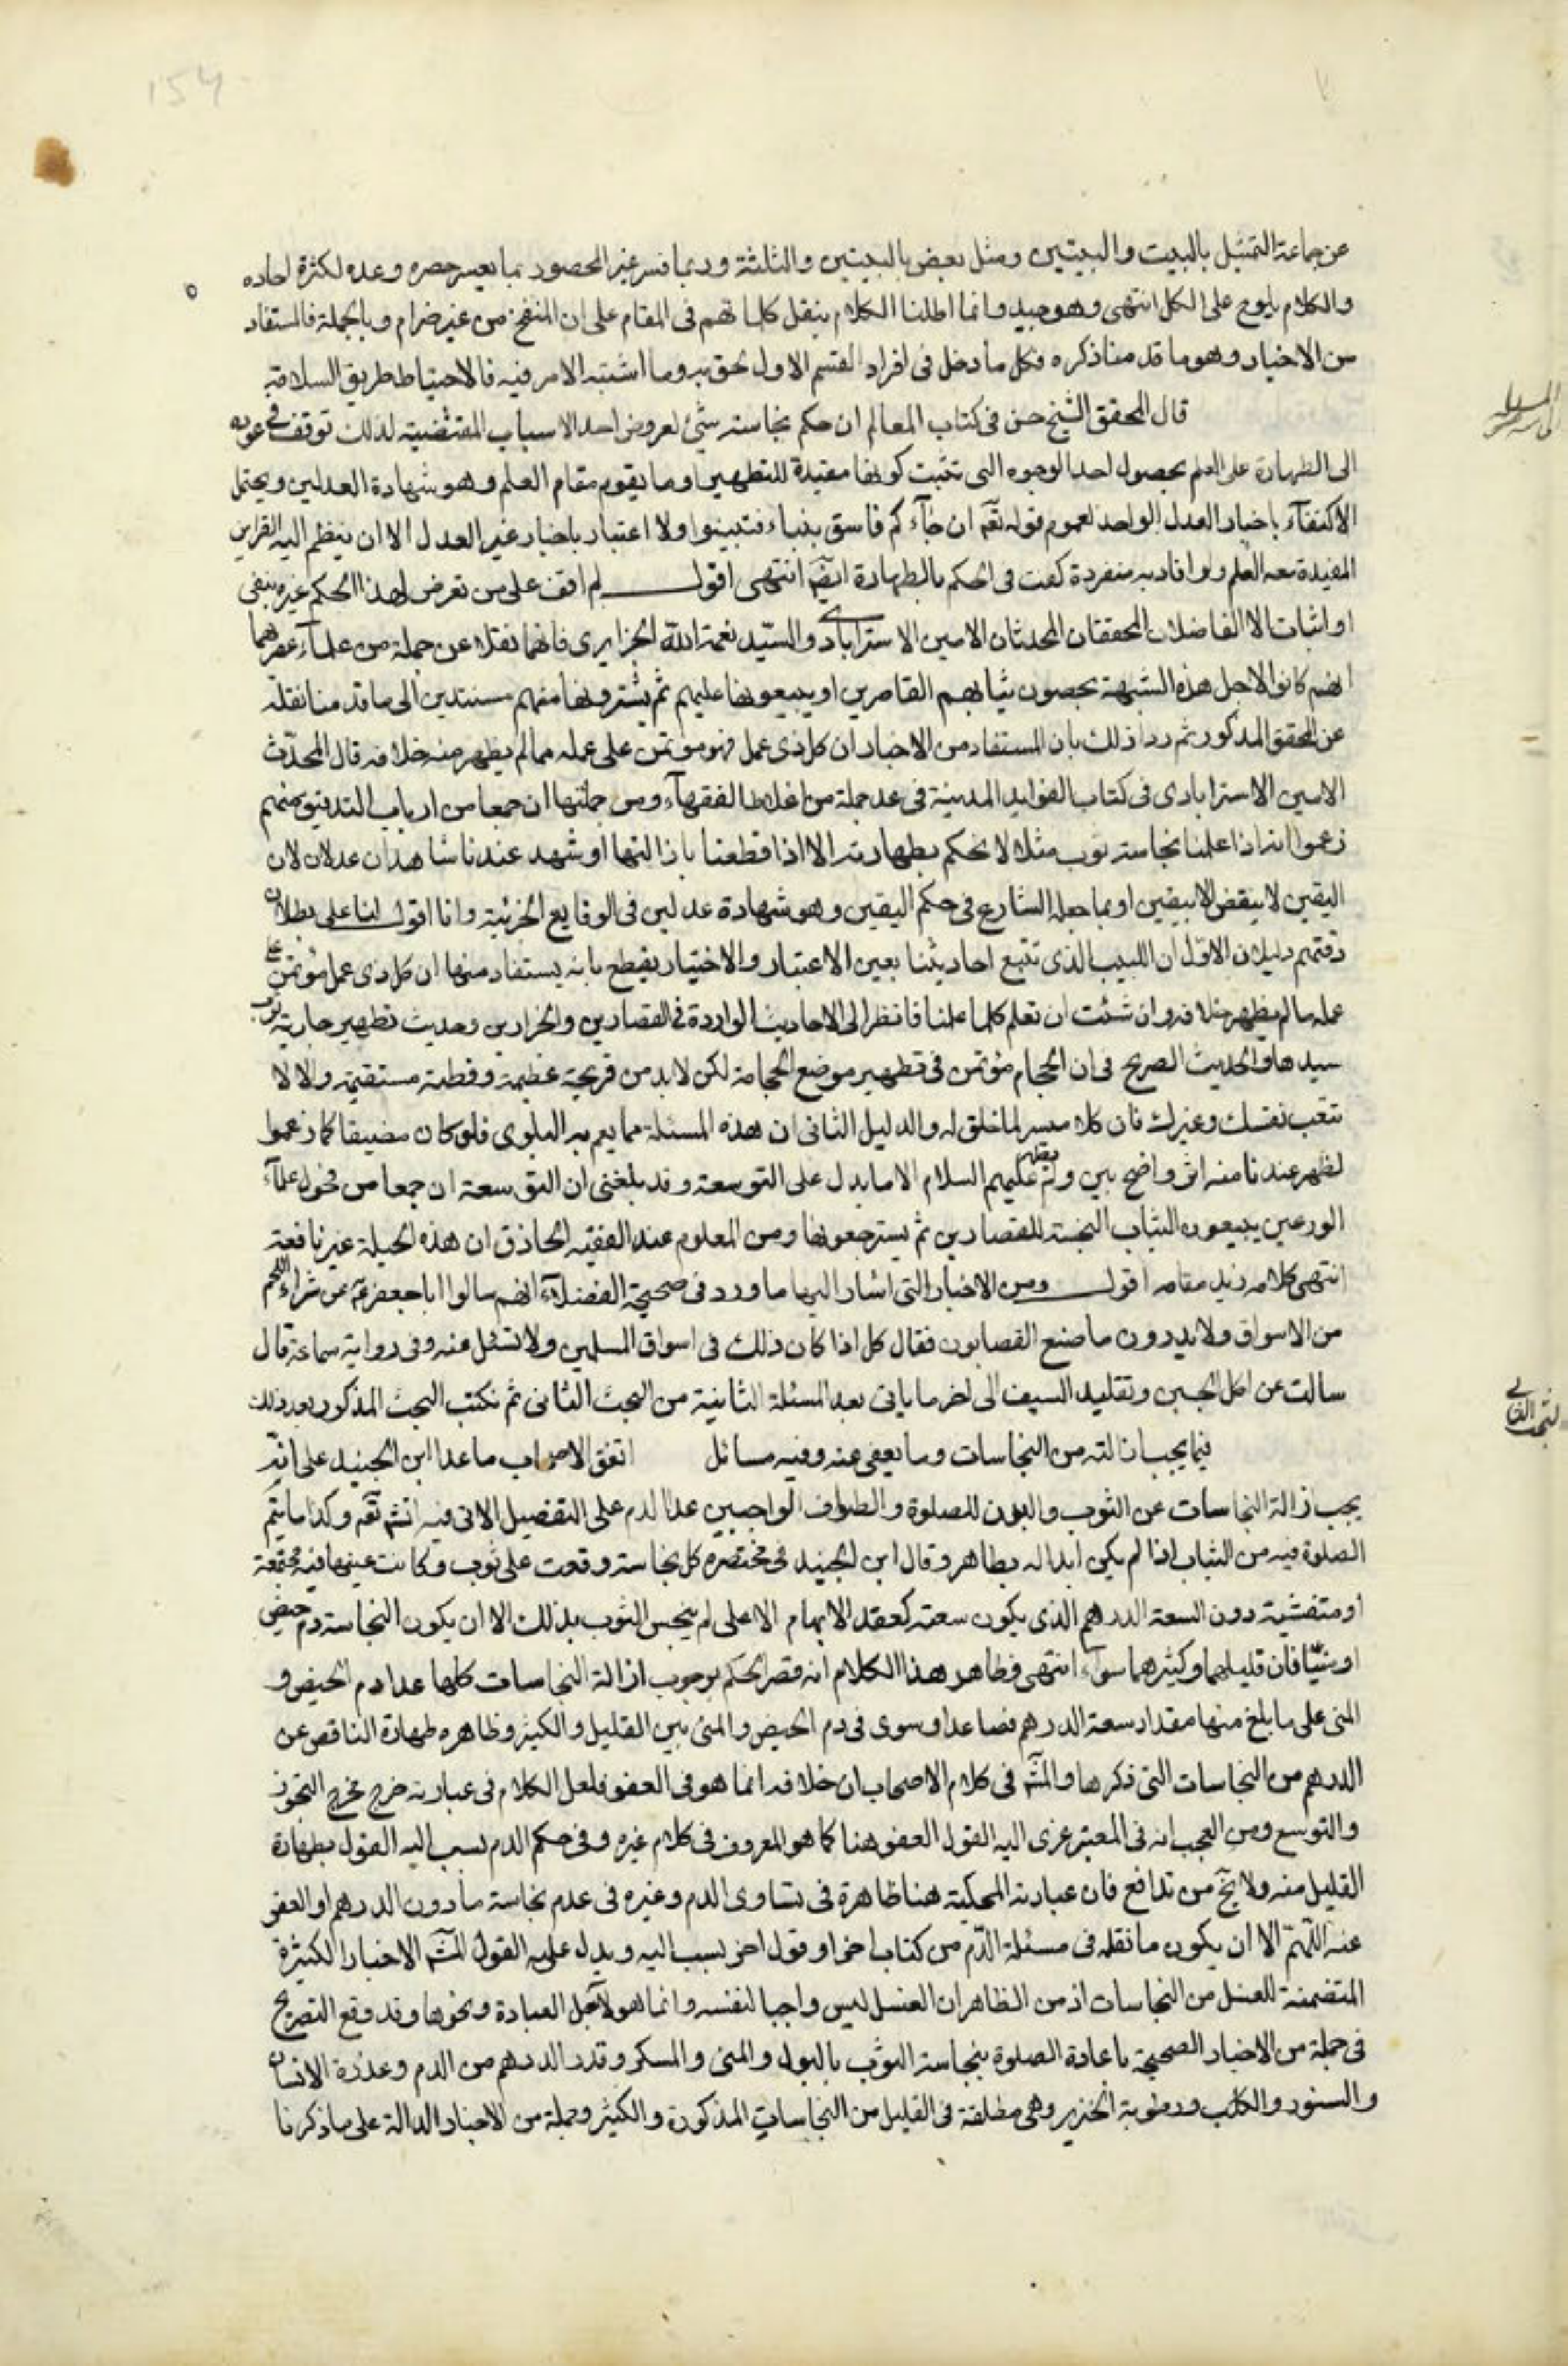 154
عن جماعة التمثيل بالبيت والبيتين ومثل بعض بالبيتين والثلثة وربما فسر غير المحصور بما يعسر حصره وعده لكثرة احاده
والكلام يلوح على الكل انتهى وهو جيد وانما اطلنا الكلام بنقل كلماتهم فى المقام على ان المنفخ من غير ضرام وبالجملة فالمستفاد
من الاخبار وهو ما قدمنا ذكره فكل ما دخل فى افراد القسم الاول لحق به وما اشتبه الامر فيه فالاحتياط طريق السلامة
قال المحقق الشيخ حسن فى كتاب المعالم ان حكم بنجاسة شئ لعروض احد الاسباب المقتضية لذلك توقف فى عوده
الى الطهارة على العلم بحصول احد الوجوه التى تثبت كونها مفيدة للتطهير او ما يقوم مقام العلم وهو شهادة العدلين ويحتمل
الاكتفآء باخبار العدل الواحد لعموم قوله تعم ان جآءكم فاسق بنباء فتبينوا ولا اعتبار باخبار غير العدل الا ان ينظم اليه القراين
المفيدة معه العلم ولو افادته منفردة كفت فى الحكم بالطهارة ايضا انتهى اقول لم اقف على من تعرض لهذا الحكم غيره بنفى
او اثبات الا الفاضلان المحققان المحدثان الامين الاسترابادى والسيد نعمة الله الجزايرى فانهما نقلا عن جملة من علمآء عصرهما
انهم كانوا لاجل هذه الشبهة يحصون ثيابهم القاصرين او يبيعونها عليهم ثم يشترونها منهم مستندين الى ما قدمنا نقله
عن المحقق المذكور ثم ردا ذلك بان المستفاد من الاخبار ان كل ذى عمل فهو مؤتمن على عمله مما لم يظهر منه خلافه قال المحدث
الامين الاسترابادى فى كتاب الفوايد المدينة فى عد جملة من اغلاط الفقهآء ومن جملتها ان جمعا من ارباب التدقيق منهم
زعموا انه اذا علمنا نجاسة ثوب مثلا لا نحكم بطهارته الا اذا قطعنا بازالتها او شهد عندنا شاهدان عدلان لان
اليقين لا ينقض الا بيقين او بما جعله الشارع فى حكم اليقين وهو شهادة عدلين فى الوقايع الجزئية وانا اقول لنا على بطلان
دقتهم دليلان الاول ان اللبيب الذى تتبع احاديثنا بعين الاعتبار والاختيار يقطع بانه يستفاد منها ان كل ذى عمل مؤتمن على
عمله ما لم يظهر خلافه وان شئت ان تعلم كلما علمنا فانظر الى الاحاديث الواردة فى القصارين والجزارين وحديث تطهير جارية ثوب
سيدها والحديث الصريح فى ان الحجام مؤتمن فى تطهير موضع الحجامة لكن لابد من قريحة عظيمة وفطنة مستقيمة والا لا
تتعب نفسك وغيرك فان كلا ميسر لما خلق له والدليل الثانى ان هذه المسئلة مما يعم به البلوى فلو كان مضيقا كما زعموا
لظهر عندنا منه اثر واضح بين ولم يظهر عنهم عليهم السلام الا ما يدل على التوسعة وقد بلغنى ان التوسعة ان جمعا من فحول علمآء
الورعين يبيعون الثياب النجسة للقصارين ثم يسترجعونها ومن المعلوم عند الفقيه الحاذق ان هذه الحيلة غير نافعة
انتهى كلامه زيد مقامه اقول ومن الاخبار التى اشار اليها ما ورد فى صحيحة الفضلآء انهم سالوا ابا جعفر ع عن شراء اللحم
من الاسواق ولا يدرون ما صنع القصابون فقال كل اذا كان ذلك فى اسواق المسلمين ولا تسئل عنه وفى رواية سماعة قال
سالت عن اكل الجبن وتقليد السيف الى اخر ما ياتى بعد المسئلة الثانية من البحث الثانى ثم نكتب البحث المذكور بعد ذلك
فيما يجب ازالته من النجاسات وما يعفى عنه وفيه مسائل اتفق الاصحاب ما عدا ابن الجنيد على انه
يجب ازالة النجاسات عن الثوب والبدن للصلوة والطواف الواجبين عدا الدم على التفصيل الاتى فيه انشم تعم وكذا ما يتم
الصلوة فيه من الثياب اذا لم يكن ابداله بطاهر وقال ابن الجنيد فى مختصره كل نجاسة وقعت على ثوب وكانت عينها فيه مجتمعة
او متفشية دون السعة الدرهم الذى يكون سعته كعقد الابهام الاعلى لم ينجس الثوب بذلك الا ان يكون النجاسة دم حيض
او منيا فان قليلهما وكثيرهما سوآء انتهى فظاهر هذا الكلام انه قصر الحكم بوجوب ازالة النجاسات كلها عدا دم الحيض و
المنى على ما بلغ منها مقدار سعة الدرهم فصاعدا وسوى فى دم الحيض والمنى بين القليل والكثير وظاهره طهارة الناقص عن
الدرهم من النجاسات التى ذكرها والمشم فى كلام الاصحاب ان خلافه انما هو فى العفو فلعل الكلام فى عبارته خرج مخرج التجوز
والتوسع ومن العجب انه فى المعتبر عزى اليه القول العفو هنا كما هو المعروف فى كلام غيره وفى حكم الدم نسب اليه القول بطهارة
القليل منه ولا يخ من تدافع فان عبارته المحكية هنا ظاهرة فى تساوى الدم وغيره فى عدم نجاسة ما دون الدرهم او العفو
عنه اللهم الا ان يكون ما نقله فى مسئلة الدم من كتاب اخر او قول اخر نسب اليه ويدل على القول المشم الاخبار الكثيرة
المتضمنة للغسل من النجاسات اذ من الظاهر ان الغسل ليس واجبا لنفسه وانما هو لاجل العبادة ونحوها وقد وقع التصريح
فى جملة من الاخبار الصحيحة باعادة الصلوة بنجاسة الثوب بالبول والمنى والمسكر وقدر الدرهم من الدم وعذرة الانسان
والسنور والكلب ورطوبة الخنزير وهى مطلقة فى القليل من النجاسات المذكورة والكثير وجملة من الاخبار الدالة على ما ذكرنا